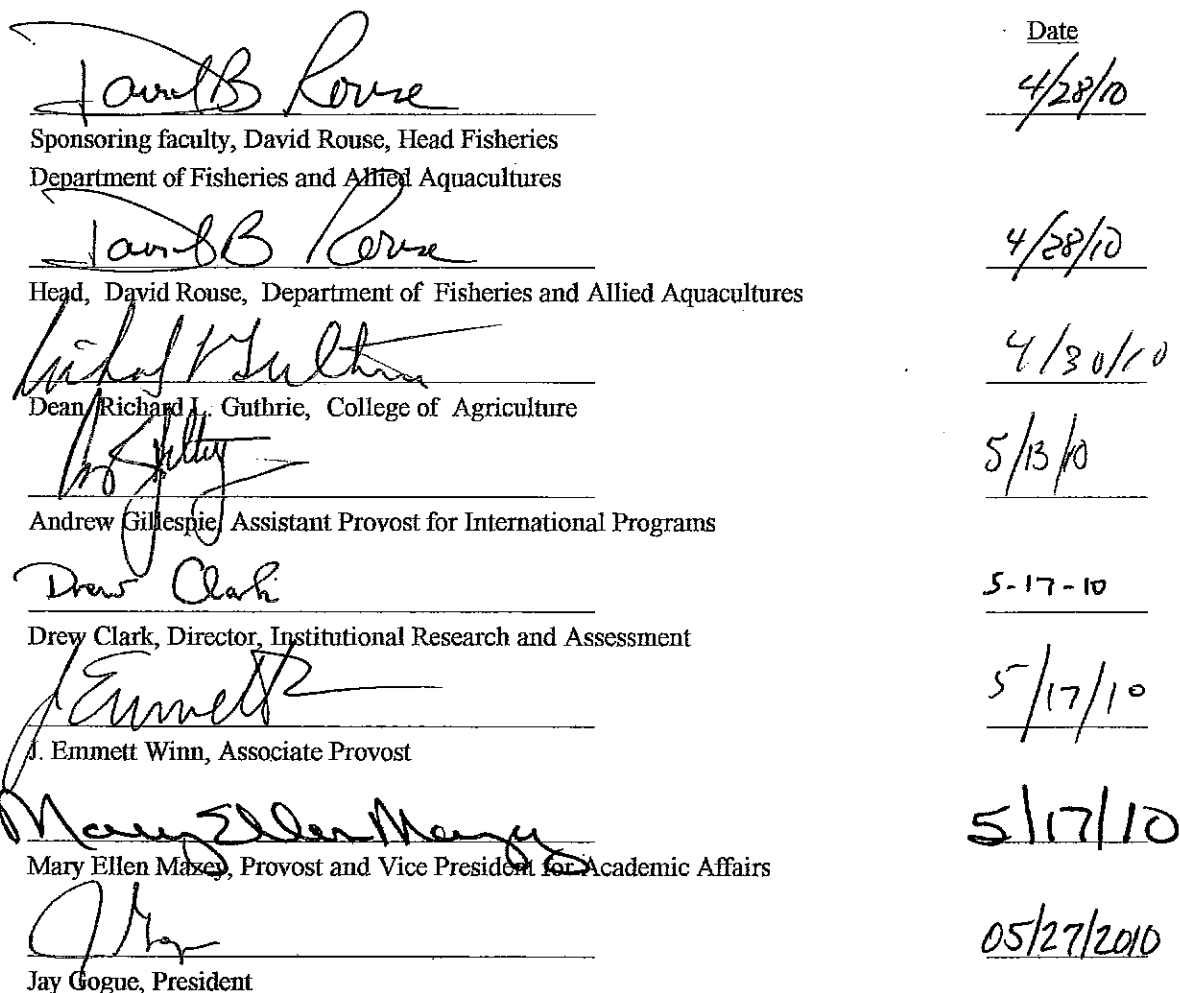 Date
David B Rouse 4/28/10
Sponsoring faculty, David Rouse, Head Fisheries
Department of Fisheries and Allied Aquacultures
David B Rouse 4/28/10
Head, David Rouse, Department of Fisheries and Allied Aquacultures
4/30/10
Dean, Richard L. Guthrie, College of Agriculture
5/13/10
Andrew Gillespie, Assistant Provost for International Programs
Drew Clark 5-17-10
Drew Clark, Director, Institutional Research and Assessment
J Emmett 5/17/10
J. Emmett Winn, Associate Provost
Mary Ellen Mazey 5/17/10
Mary Ellen Maxey, Provost and Vice President for Academic Affairs
05/27/2010
Jay Gogue, President